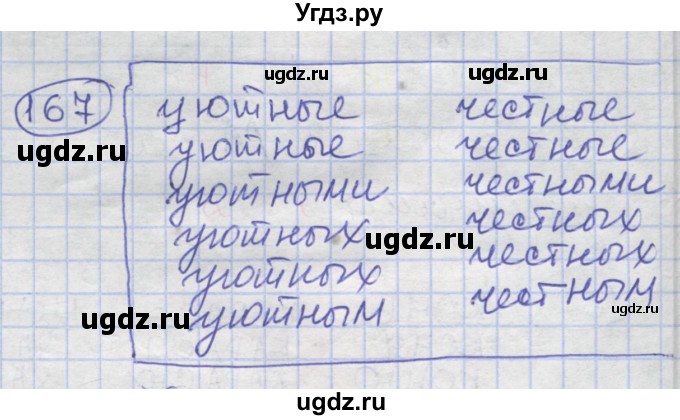 Угдз.ру
167
уютные честные
уютные честные
уютными честными
уютных честных
уютных честных
уютным честным
ugdz.ru
ugdz.ru
ugdz.ru
ugdz.ru
ugdz.ru
ugdz.ru
ugdz.ru
ugdz.ru
ugdz.ru